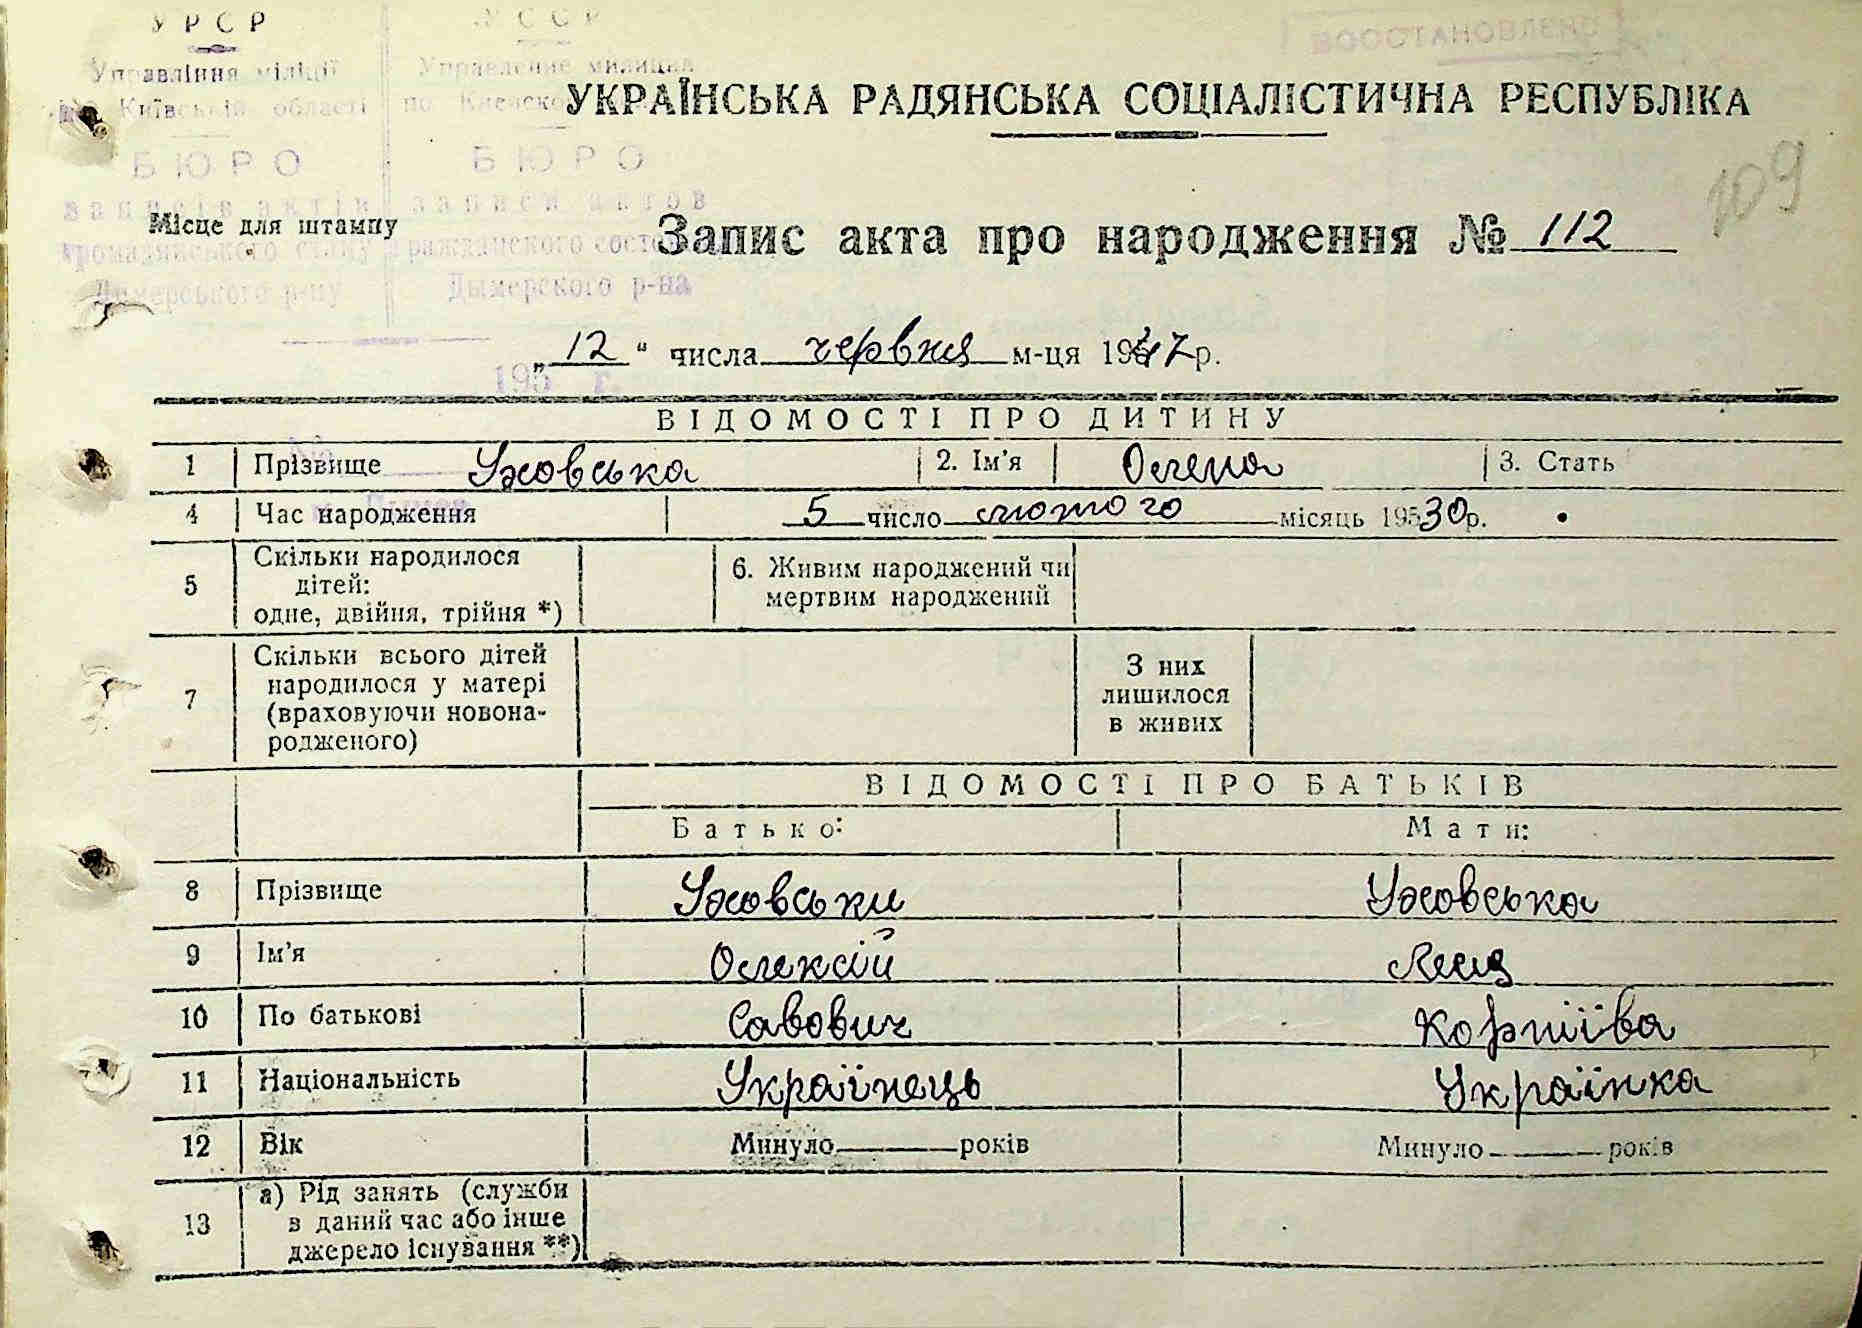 УРСР
УССР
ВОССТАНОВЛЕНО
Управління міліції
Управление милиции
по Київській області
по Киевско
УКРАЇНСЬКА РАДЯНСЬКА СОЦІАЛІСТИЧНА РЕСПУБЛІКА
БЮРО
БЮРО
109
записів актів
записи актов
Місце для штампу
Запис акта про народження № 112
громадянського стану
гражданского состо
Димерського р-ну
Дымерского р-на
„ 12 “ числа червня м-ця 1947 р.
195 г.
ВІДОМОСТІ ПРО ДИТИНУ
1 Прізвище Ужовська 2. Ім'я Олена 3. Стать
4 Час народження 5 число лютого місяць 1930 р.
5 Скільки народилося
дітей:
одне, двійня, трійня *)
6. Живим народжений чи
мертвим народжений
7 Скільки всього дітей
народилося у матері
(враховуючи новона-
родженого)
З них
лишилося
в живих
ВІДОМОСТІ ПРО БАТЬКІВ
Батько: Мати:
8 Прізвище Ужовськи Ужовська
9 Ім'я Олексій
10 По батькові Савович Корніївa
11 Національність Українець Українка
12 Вік Минуло років Минуло років
13 а) Рід занять (служби
в даний час або інше
джерело існування **)